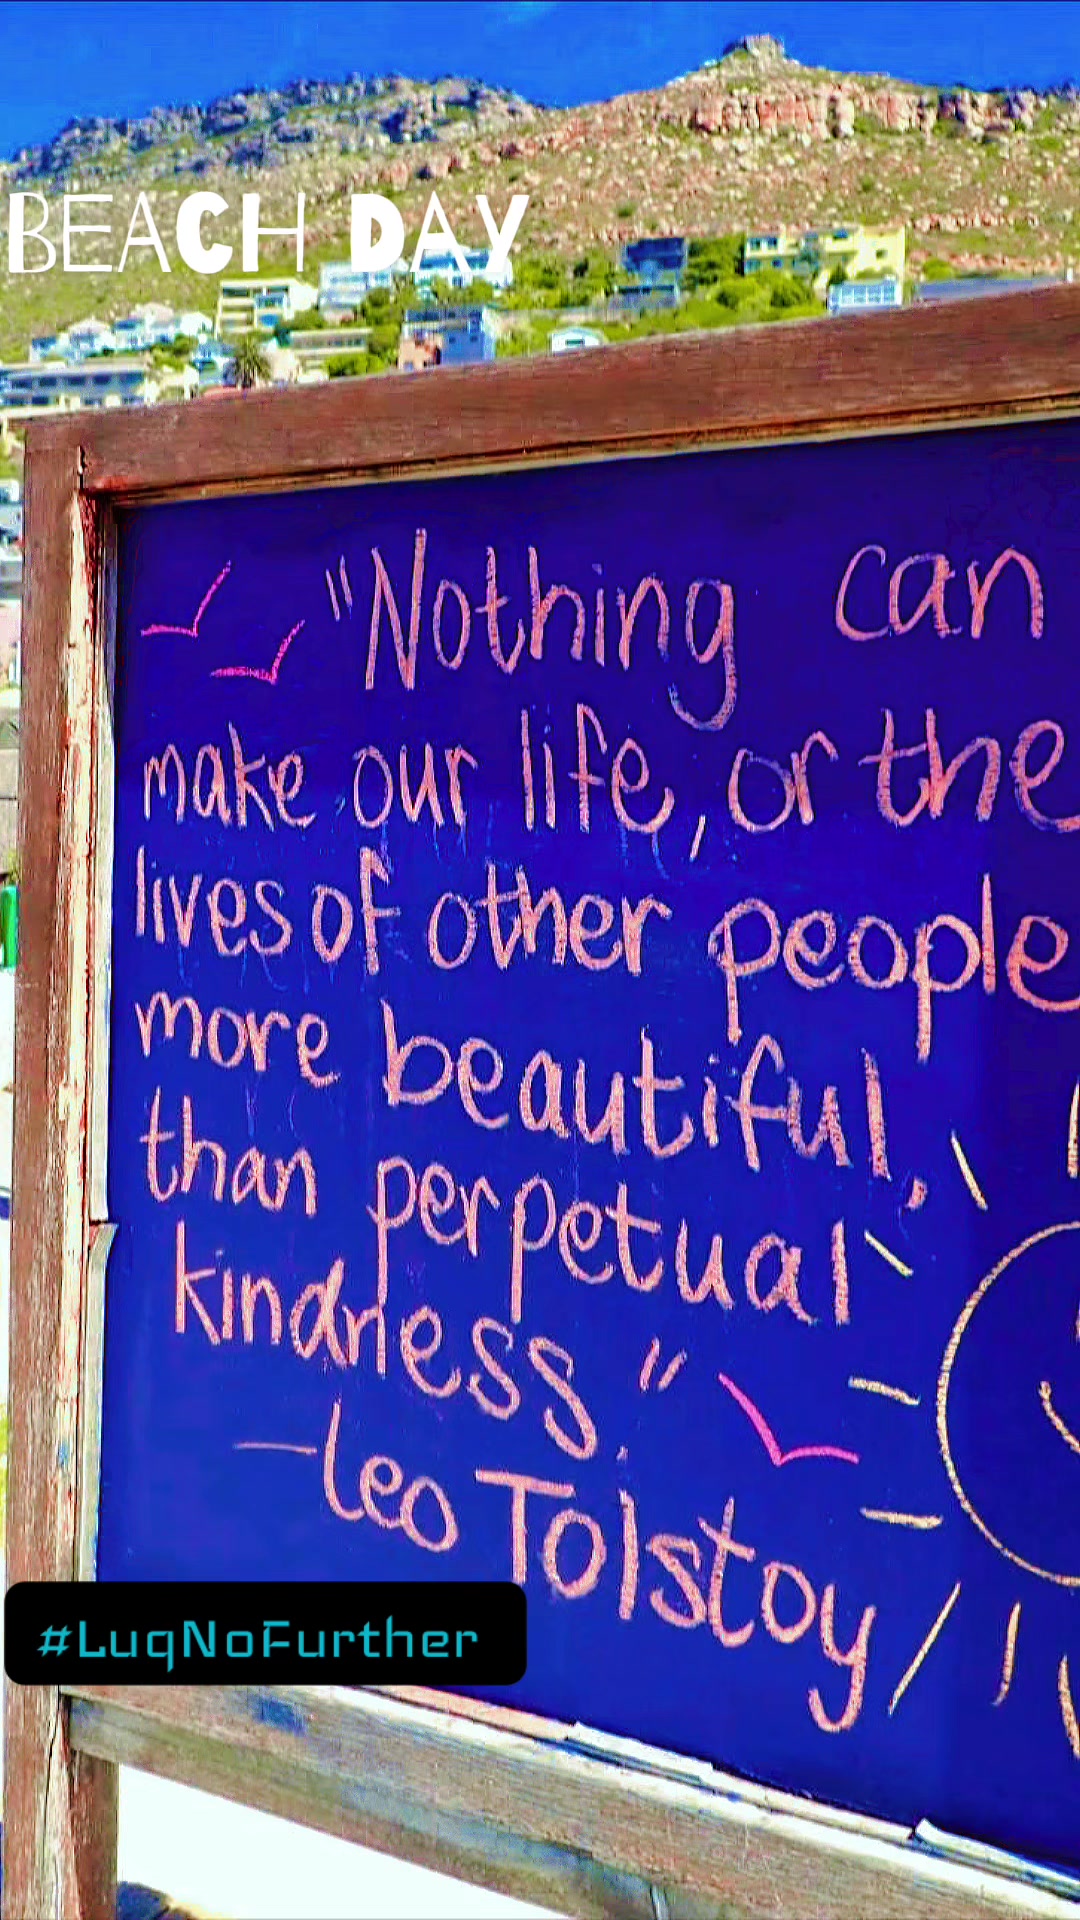 BEACH DAY
"Nothing can
make our life, or the
lives of other people
more beautiful,
than perpetual
kindness."
—Leo Tolstoy
#LuqNoFurther